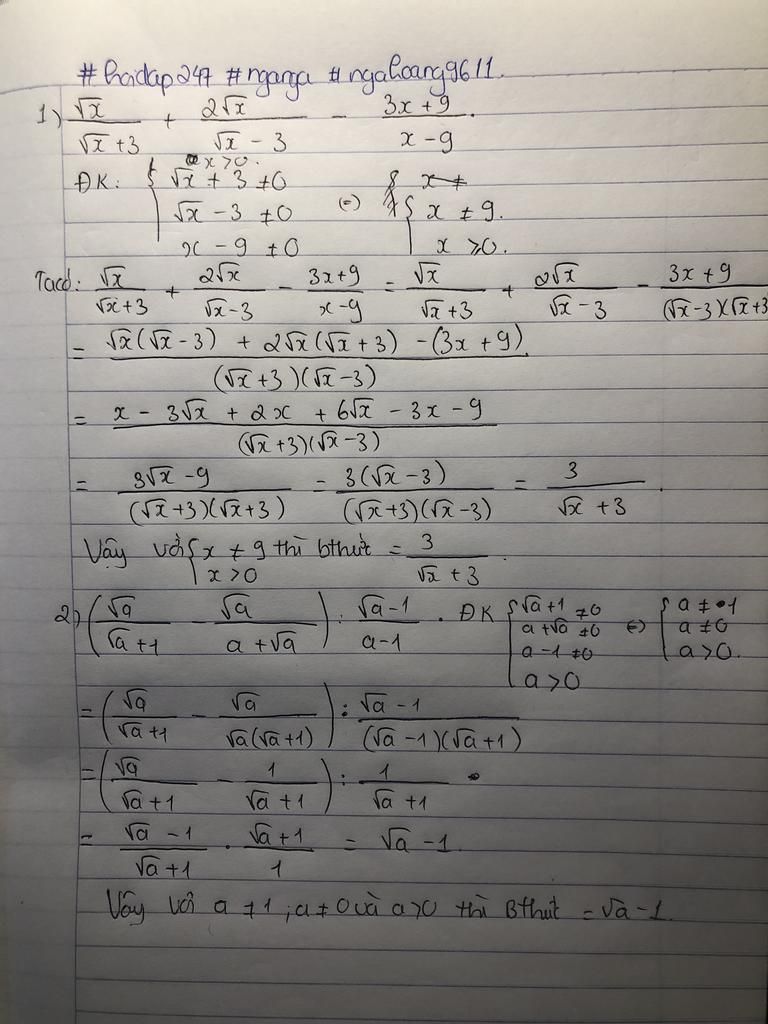 #hoidap247 #nganga #ngahoang9611.
1) √x/(√x+3) + 2√x/(√x-3) - (3x+9)/(x-9).
x>0.
ĐK: { √x + 3 ≠0
√x - 3 ≠0 (=) { x ≠ 9.
x - 9 ≠0 x ≥0.
Tacó: √x/(√x+3) + 2√x/(√x-3) - (3x+9)/(x-9) = √x/(√x+3) + 2√x/(√x-3) - (3x+9)/((√x-3)(√x+3
= (√x(√x-3) + 2√x(√x+3) -(3x+9))/((√x+3)(√x-3))
= (x - 3√x + 2x + 6√x - 3x - 9)/((√x+3)(√x-3))
= (3√x-9)/((√x+3)(√x+3)) = 3(√x-3)/((√x+3)(√x-3)) = 3/(√x+3).
Vậy với { x ≠ 9 thì bthức = 3/(√x+3).
x>0
2) (√a/(√a+1) - √a/(a+√a)) : (√a-1)/(a-1). ĐK { √a+1 ≠0
a+√a ≠0 (=) { a≠1
a-1 ≠0 a≠0
a>0 a>0.
= (√a/(√a+1) - √a/(√a(√a+1))) : (√a-1)/((√a-1)(√a+1))
= (√a/(√a+1) - 1/(√a+1)) : 1/(√a+1)
= (√a-1)/(√a+1) . (√a+1)/1 = √a-1.
Vậy với a≠1; a≠0 và a>0 thì Bthức = √a-1.